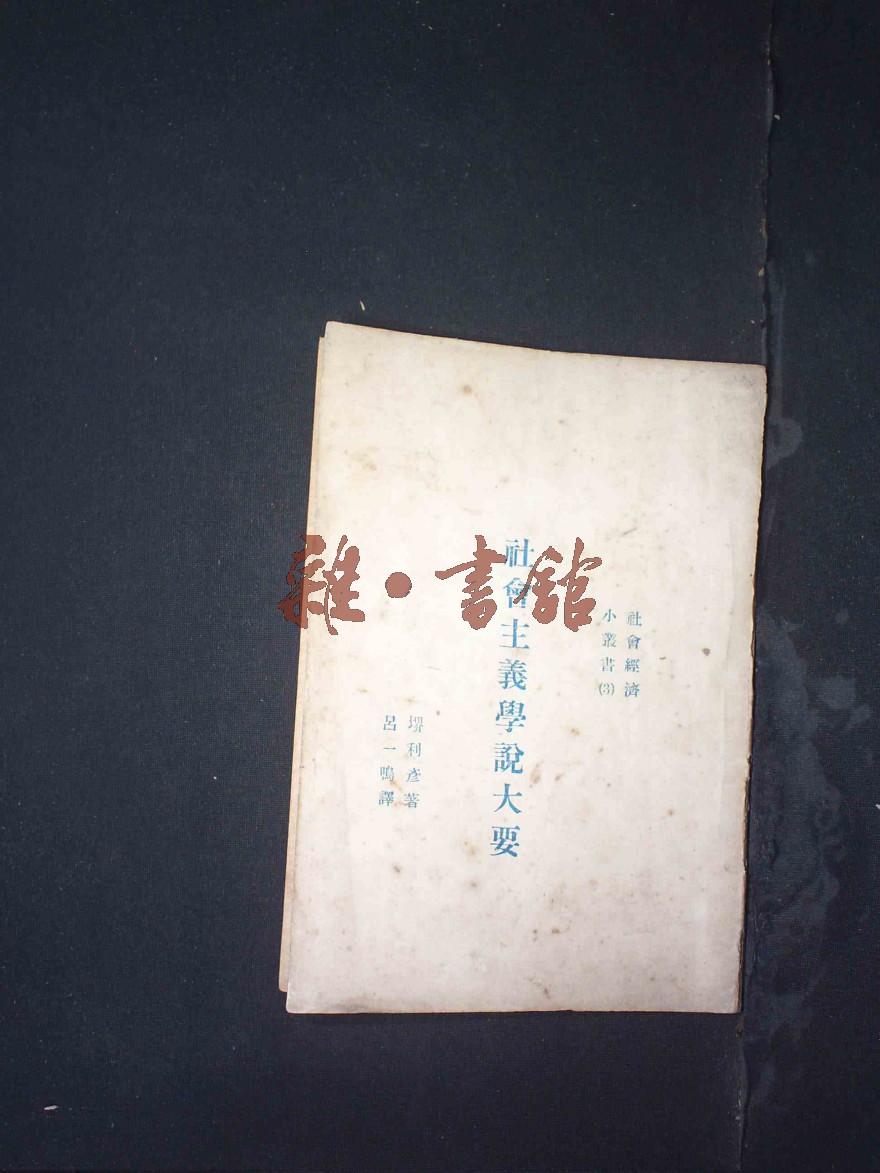 社會經濟
小叢書(3)
社會主義學說大要
堺利彥著
呂一鳴譯
雜·書館